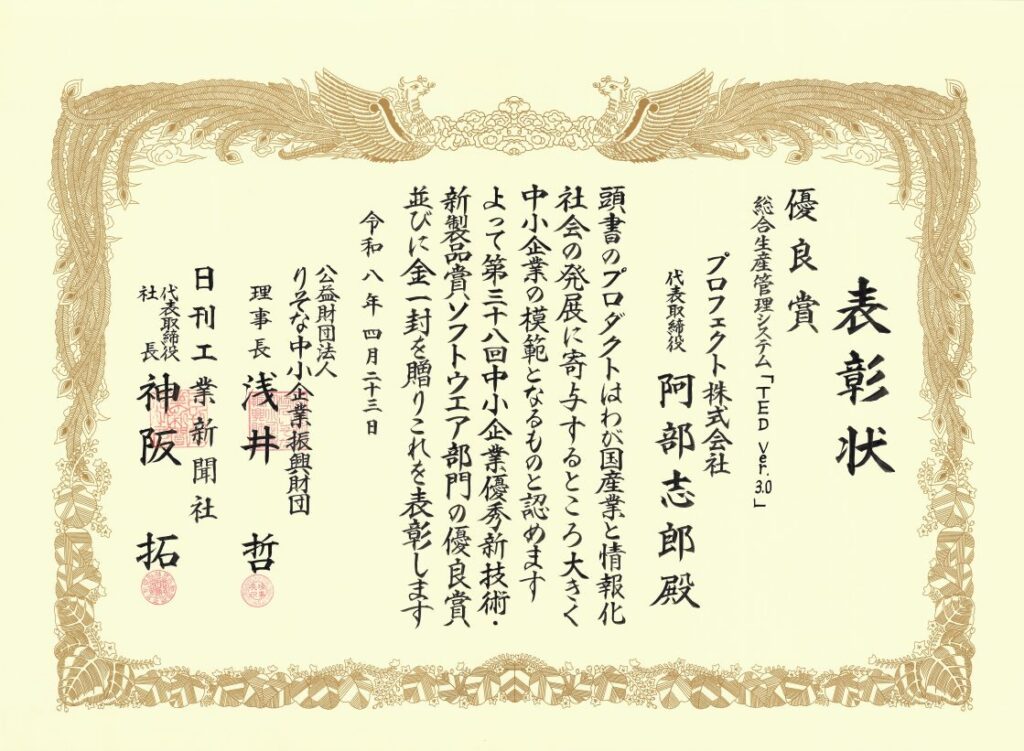 表彰状
優良賞
総合生産管理システム「TED Ver.3.0」
プロフェクト株式会社
代表取締役 阿部志郎殿
頭書のプロダクトはわが国産業と情報化
社会の発展に寄与するところ大きく
中小企業の模範となるものと認めます
よって第三十八回中小企業優秀新技術・
新製品賞ソフトウエア部門の優良賞
並びに金一封を贈りこれを表彰します
令和八年四月二十三日
公益財団法人
りそな中小企業振興財団
理事長 浅井 哲
日刊工業新聞社
代表取締役
社長 神阪 拓